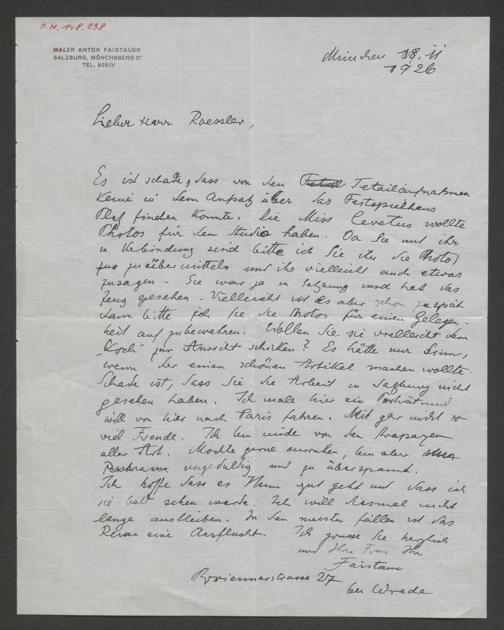 I.N. 148.238
MALER ANTON FAISTAUER
SALZBURG, MÖNCHSBERG 27
TEL. 809/IV
München 18. II
1926
Lieber Herr Roessler,
Es ist schade, dass von den Detailaufnahmen
keine in dem Aufsatz über das Festspielhaus
Platz finden konnte. Die Miss Levetus wollte
Photos für den Studio haben. Da Sie mit ihr
in Verbindung sind bitte ich Sie ihr die Photos
zu übermitteln und ihr vielleicht auch etwas
zusagen. Sie war ja in Salzburg und hat das
Zeug gesehen. Vielleicht ist es aber schon zu spät
dann bitte ich Sie die Photos für einen Gelegen-
heit aufzubewahren. Wollen Sie sie vielleicht dem
"Koch" zur Ansicht schicken? Es hätte nur Sinn,
wenn der einen schönen Artikel machen wollte.
Schade ist, dass Sie die Arbeit in Salzburg nicht
gesehen haben. Ich male hier ein Porträt und
will von hier nach Paris fahren. Mit gar nicht so
viel Freude. Ich bin müde von den Strapazen
aller Art. Möchte gerne ausruhen, bin aber
ungeduldig und zu überspannt.
Ich hoffe dass es Ihnen gut geht und dass ich
sie bald sehen werde. Ich will diesmal nicht
lange ausbleiben. In den meisten Fällen ist das
Reisen eine Ausflucht. Ich grüsse Sie herzlich
und Ihre Frau Ihr
Faistauer
Briennerstrasse 27
bei Wrede